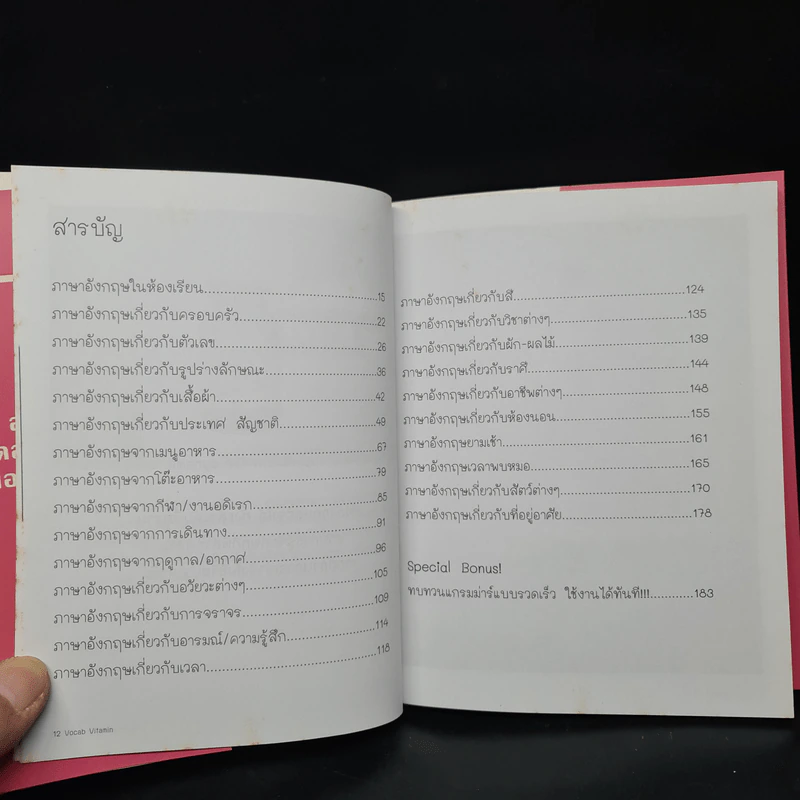 สารบัญ
ภาษาอังกฤษในห้องเรียน....................................15
ภาษาอังกฤษเกี่ยวกับครอบครัว............................22
ภาษาอังกฤษเกี่ยวกับตัวเลข................................26
ภาษาอังกฤษเกี่ยวกับรูปร่างลักษณะ.......................36
ภาษาอังกฤษเกี่ยวกับเสื้อผ้า................................42
ภาษาอังกฤษเกี่ยวกับประเทศ สัญชาติ...................49
ภาษาอังกฤษจากเมนูอาหาร................................67
ภาษาอังกฤษจากโต๊ะอาหาร................................79
ภาษาอังกฤษจากกีฬา/งานอดิเรก.........................85
ภาษาอังกฤษจากการเดินทาง..............................91
ภาษาอังกฤษจากฤดูกาล/อากาศ..........................96
ภาษาอังกฤษเกี่ยวกับอวัยวะต่างๆ.........................105
ภาษาอังกฤษเกี่ยวกับการจราจร...........................109
ภาษาอังกฤษเกี่ยวกับอารมณ์/ความรู้สึก..................114
ภาษาอังกฤษเกี่ยวกับเวลา..................................118
12 Vocab Vitamin
ภาษาอังกฤษเกี่ยวกับสี....................................124
ภาษาอังกฤษเกี่ยวกับวิชาต่างๆ...........................135
ภาษาอังกฤษเกี่ยวกับผัก-ผลไม้...........................139
ภาษาอังกฤษเกี่ยวกับราศี..................................144
ภาษาอังกฤษเกี่ยวกับอาชีพต่างๆ.........................148
ภาษาอังกฤษเกี่ยวกับห้องนอน...........................155
ภาษาอังกฤษยามเช้า.......................................161
ภาษาอังกฤษเวลาพบหมอ.................................165
ภาษาอังกฤษเกี่ยวกับสัตว์ต่างๆ...........................170
ภาษาอังกฤษเกี่ยวกับที่อยู่อาศัย..........................178
Special Bonus!
ทบทวนแกรมม่าร์แบบรวดเร็ว ใช้งานได้ทันที!!!...........183